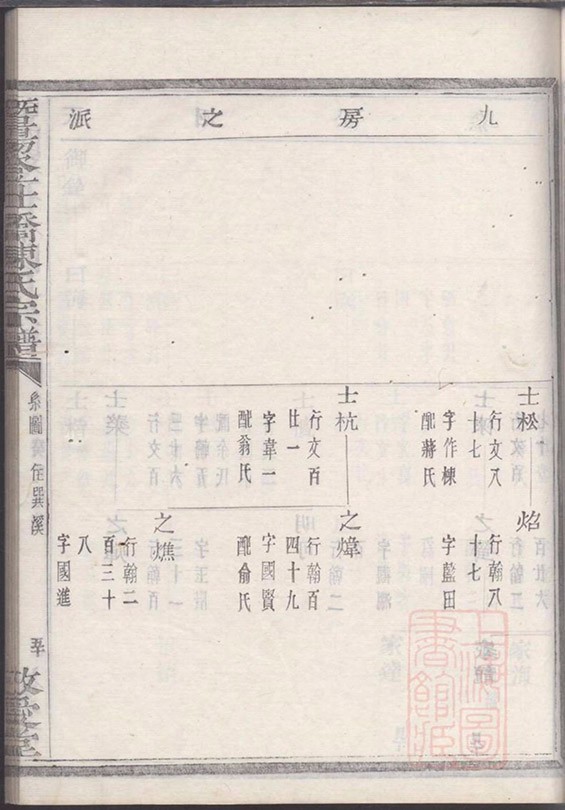 九房之派
士松
行文八
十七
字作棟
配蔣氏
焰
行翰八
十七
字藍田
士杭
行文百
廿一
字韋二
配翁氏
之煒
行翰百
四十九
字國賢
配俞氏
之燋
行翰二
百三十
八
字國進
橋陳氏宗譜
系圖
巽溪
敬愛堂